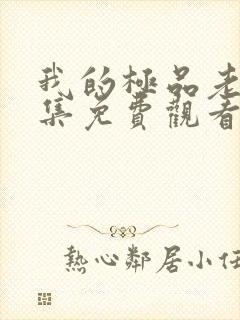 我的極品老
集免費觀看
熱心鄰居小任